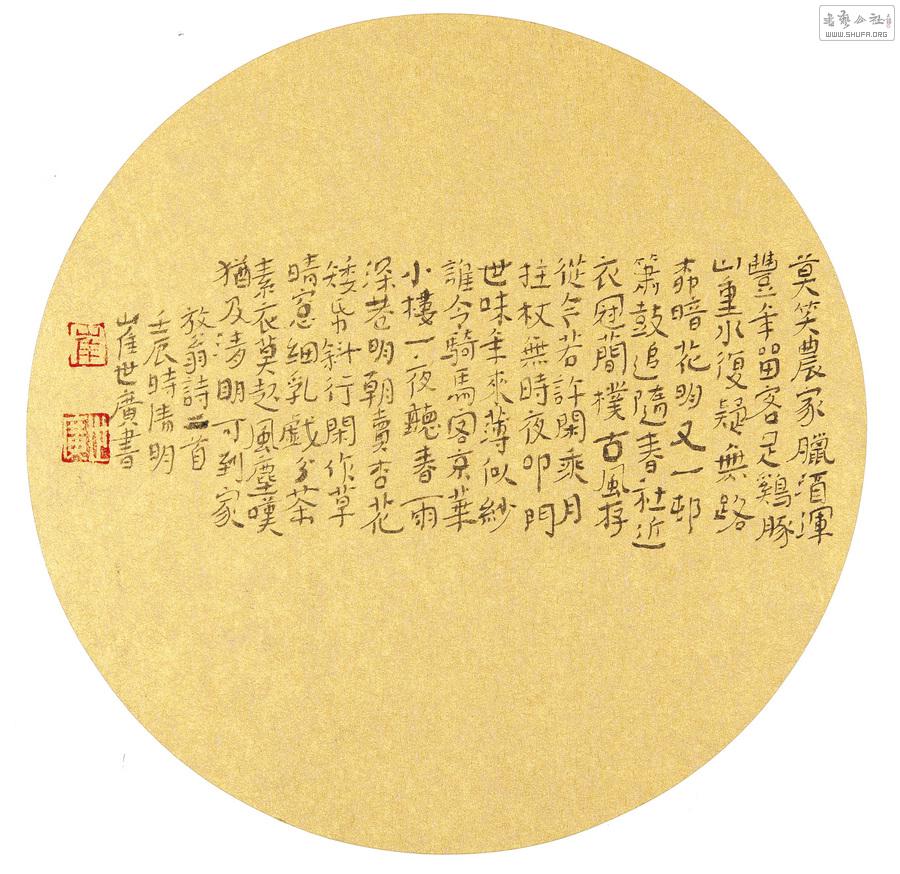 莫笑農家臘酒渾
豐年留客足鷄豚
山重水復疑無路
柳暗花明又一邨
簫鼓追隨春社近
衣冠簡樸古風存
從今若許閑乘月
拄杖無時夜叩門
世味年來薄似紗
誰令騎馬客京華
小樓一夜聽春雨
深巷明朝賣杏花
矮紙斜行閑作草
晴窓細乳戲分茶
素衣莫起風塵嘆
猶及清明可到家
放翁詩二首
壬辰時清明
崔世廣書
WWW.SHUFA.ORG